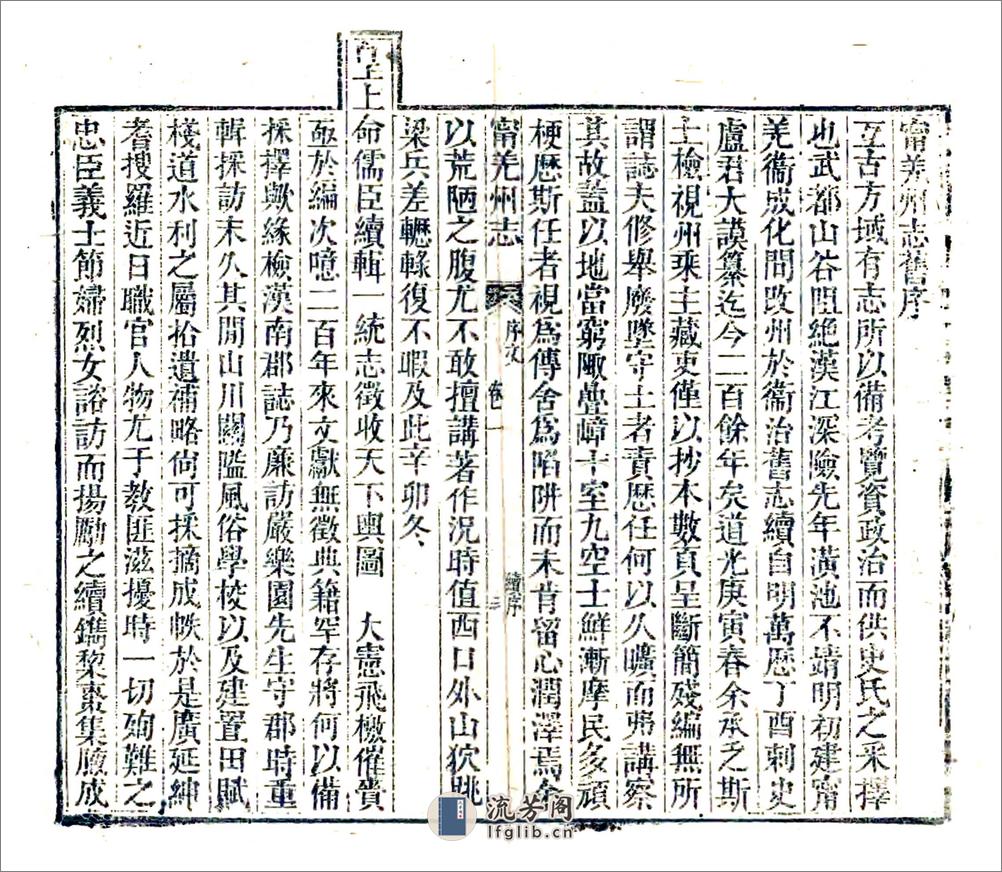 甯羌州志舊序
亙古方域有志所以備考覽資政治而供史氏之采擇
也武都山谷阻絕漢江深險先年潢池不靖明初建甯
羌衞成化間改州於衞治舊志續自明萬曆丁酉刺史
盧君大謨纂迄今二百餘年矣道光庚寅春余承乏斯
土檢視州乘主藏吏僅以抄本數頁呈斷簡殘編無所
謂誌夫修舉廢墜守土者責歷任何以久曠而弗講察
其故蓋以地當窮陬疊嶂十室九空士鮮漸摩民多頑
梗歷斯任者視爲傳舍爲陷阱而未肯留心潤澤焉余
甯羌州志
序文
卷一
續序
三
以荒陋之腹尤不敢擅講著作況時值西口外山狄跳
梁兵差轣轆復不暇及此辛卯冬
皇上
命儒臣續輯一統志徵收天下輿圖 大憲飛檄催賫
亟於編次噫二百年來文獻無徵典籍罕存將何以備
採擇歟緣檢漢南郡誌乃廉訪嚴樂園先生守郡時重
輯採訪未久其間山川關隘風俗學校以及建置田賦
棧道水利之屬拾遺補略尙可採摘成帙於是廣延紳
耆搜羅近日職官人物尤于教匪滋擾時一切殉難之
忠臣義士節婦烈女諮訪而揚勵之續鐫棃棗集廠成
流芳阁
lfglib.cn